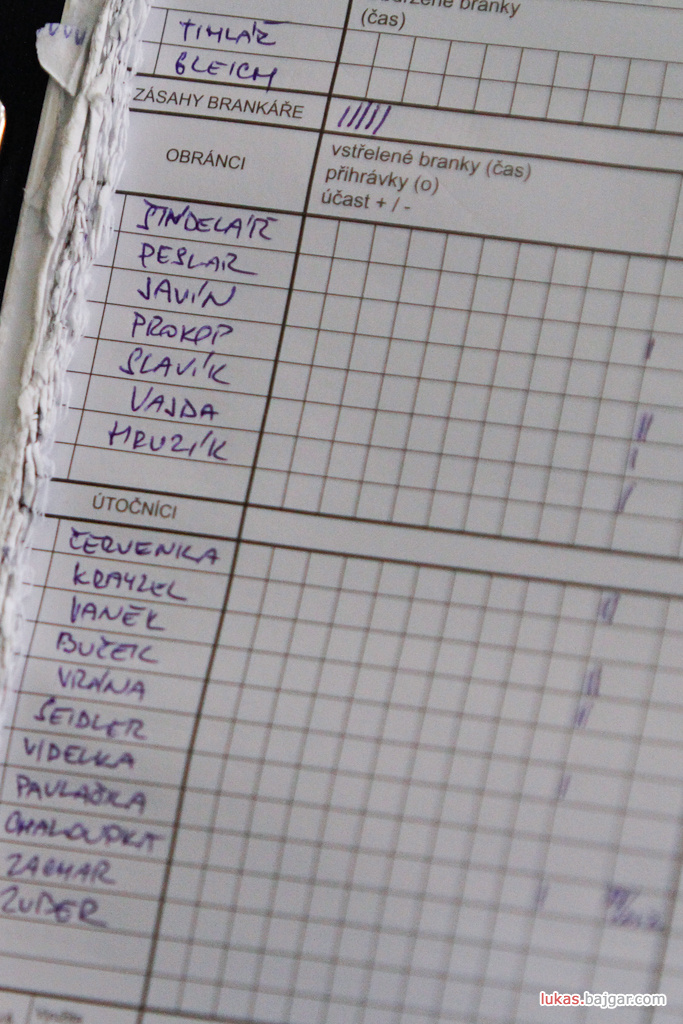 branky
(čas)
TIHLAŘ
BLEICH
ZÁSAHY BRANKÁŘE
OBRÁNCI
vstřelené branky (čas)
přihrávky (o)
účast + / -
ŠINDELÁŘ
PESLAR
SAVÍN
PROKOP
SLAVÍK
VAJDA
HRUZÍK
ÚTOČNÍCI
ČERVENKA
KRAYZEL
VANĚK
BUČEK
VRÁNA
ŠEIDLER
VIDELKA
PAVLAČKA
CHALOUPKA
ZACHAR
ZUBER
lukas.bajgar.com